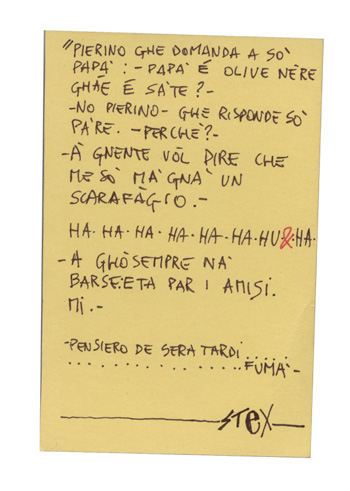 "PIERINO GHE DOMANDA A SO'
PAPA': - PAPA' É OLIVE NÈRE
GHÁE É SA'TE? -
- NO PIERINO - GHE RISPONDE SO'
PA'RE. - PERCHE'? -
- À GNENTE VÒL DIRE CHE
ME SO' MA'GNA' UN
SCARAFÀGIO. -
HA. HA. HA. HA. HA. HA. HU&. HA.
- A GHÒ SEMPRE NA'
BARSE:ETA PAR I AMISI.
MI. -
- PENSIERO DE SERA TARDI.....
............... FUMA' -
STEX